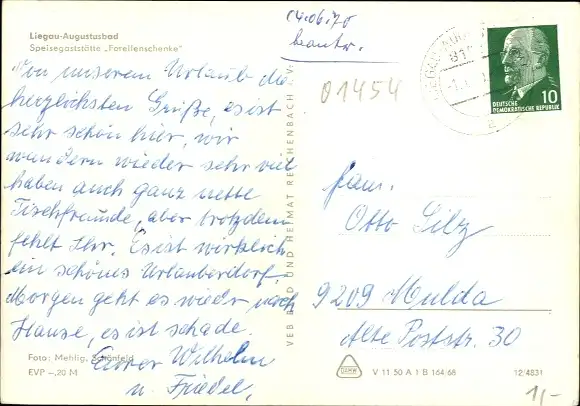 Liegau-Augustusbad
Speisegaststätte „Forellenschenke"
Von unserem Urlaub die
herzlichsten Grüße, es ist
sehr schön hier, wir
wandern wieder sehr viel
haben auch ganz nette
Tischfreunde, aber trotzdem
fehlt Ihr. Es ist wirklich
ein schönes Urlauberdorf.
Morgen geht es wieder nach
Hause, es ist schade.
Eurer Wilhelm
u. Friedel.
Foto: Mehlig, Schönfeld
EVP –,20 M
VEB BILD UND HEIMAT REICHENBACH i. V.
04.06.70
beantw.
01454
DEUTSCHE
DEMOKRATISCHE REPUBLIK
10
Fam.
Otto Silz
9209 Mulda
Alte Poststr. 30
V 11 50 A 1 B 164/68
12/4831
1,-